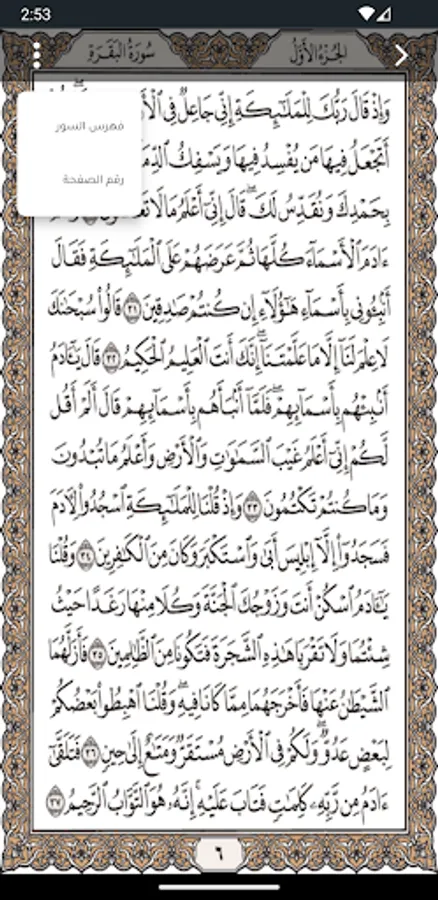 2:53
سُورَةُ البَقَرَةِ
الجُزْءُ الأَوَّلُ
فهرس السور
رقم الصفحة
وَإِذْ قَالَ رَبُّكَ لِلْمَلَـٰٓئِكَةِ إِنِّى جَاعِلٌ فِى
أَتَجْعَلُ فِيهَا مَن يُفْسِدُ فِيهَا وَيَسْفِكُ
بِحَمْدِكَ وَنُقَدِّسُ لَكَ ۖ قَالَ إِنِّىٓ أَعْلَمُ مَا لَا
ءَادَمَ ٱلْأَسْمَآءَ كُلَّهَا ثُمَّ عَرَضَهُمْ عَلَى ٱلْمَلَـٰٓئِكَةِ فَقَالَ
أَنۢبِـُٔونِى بِأَسْمَآءِ هَـٰٓؤُلَآءِ إِن كُنتُمْ صَـٰدِقِينَ ٣١ قَالُوا۟ سُبْحَـٰنَكَ
لَا عِلْمَ لَنَآ إِلَّا مَا عَلَّمْتَنَآ ۖ إِنَّكَ أَنتَ ٱلْعَلِيمُ ٱلْحَكِيمُ ٣٢ قَالَ يَـٰٓـَٔادَمُ
أَنۢبِئْهُم بِأَسْمَآئِهِمْ ۖ فَلَمَّآ أَنۢبَأَهُم بِأَسْمَآئِهِمْ قَالَ أَلَمْ أَقُل
لَّكُمْ إِنِّىٓ أَعْلَمُ غَيْبَ ٱلسَّمَـٰوَٰتِ وَٱلْأَرْضِ وَأَعْلَمُ مَا تُبْدُونَ
وَمَا كُنتُمْ تَكْتُمُونَ ٣٣ وَإِذْ قُلْنَا لِلْمَلَـٰٓئِكَةِ ٱسْجُدُوا۟ لِـَٔادَمَ
فَسَجَدُوٓا۟ إِلَّآ إِبْلِيسَ أَبَىٰ وَٱسْتَكْبَرَ وَكَانَ مِنَ ٱلْكَـٰفِرِينَ ٣٤ وَقُلْنَا
يَـٰٓـَٔادَمُ ٱسْكُنْ أَنتَ وَزَوْجُكَ ٱلْجَنَّةَ وَكُلَا مِنْهَا رَغَدًا حَيْثُ
شِئْتُمَا وَلَا تَقْرَبَا هَـٰذِهِ ٱلشَّجَرَةَ فَتَكُونَا مِنَ ٱلظَّـٰلِمِينَ ٣٥ فَأَزَلَّهُمَا
ٱلشَّيْطَـٰنُ عَنْهَا فَأَخْرَجَهُمَا مِمَّا كَانَا فِيهِ ۖ وَقُلْنَا ٱهْبِطُوا۟ بَعْضُكُمْ
لِبَعْضٍ عَدُوٌّ ۖ وَلَكُمْ فِى ٱلْأَرْضِ مُسْتَقَرٌّ وَمَتَـٰعٌ إِلَىٰ حِينٍ ٣٦ فَتَلَقَّىٰٓ
ءَادَمُ مِن رَّبِّهِۦ كَلِمَـٰتٍ فَتَابَ عَلَيْهِ ۚ إِنَّهُۥ هُوَ ٱلتَّوَّابُ ٱلرَّحِيمُ ٣٧
٦